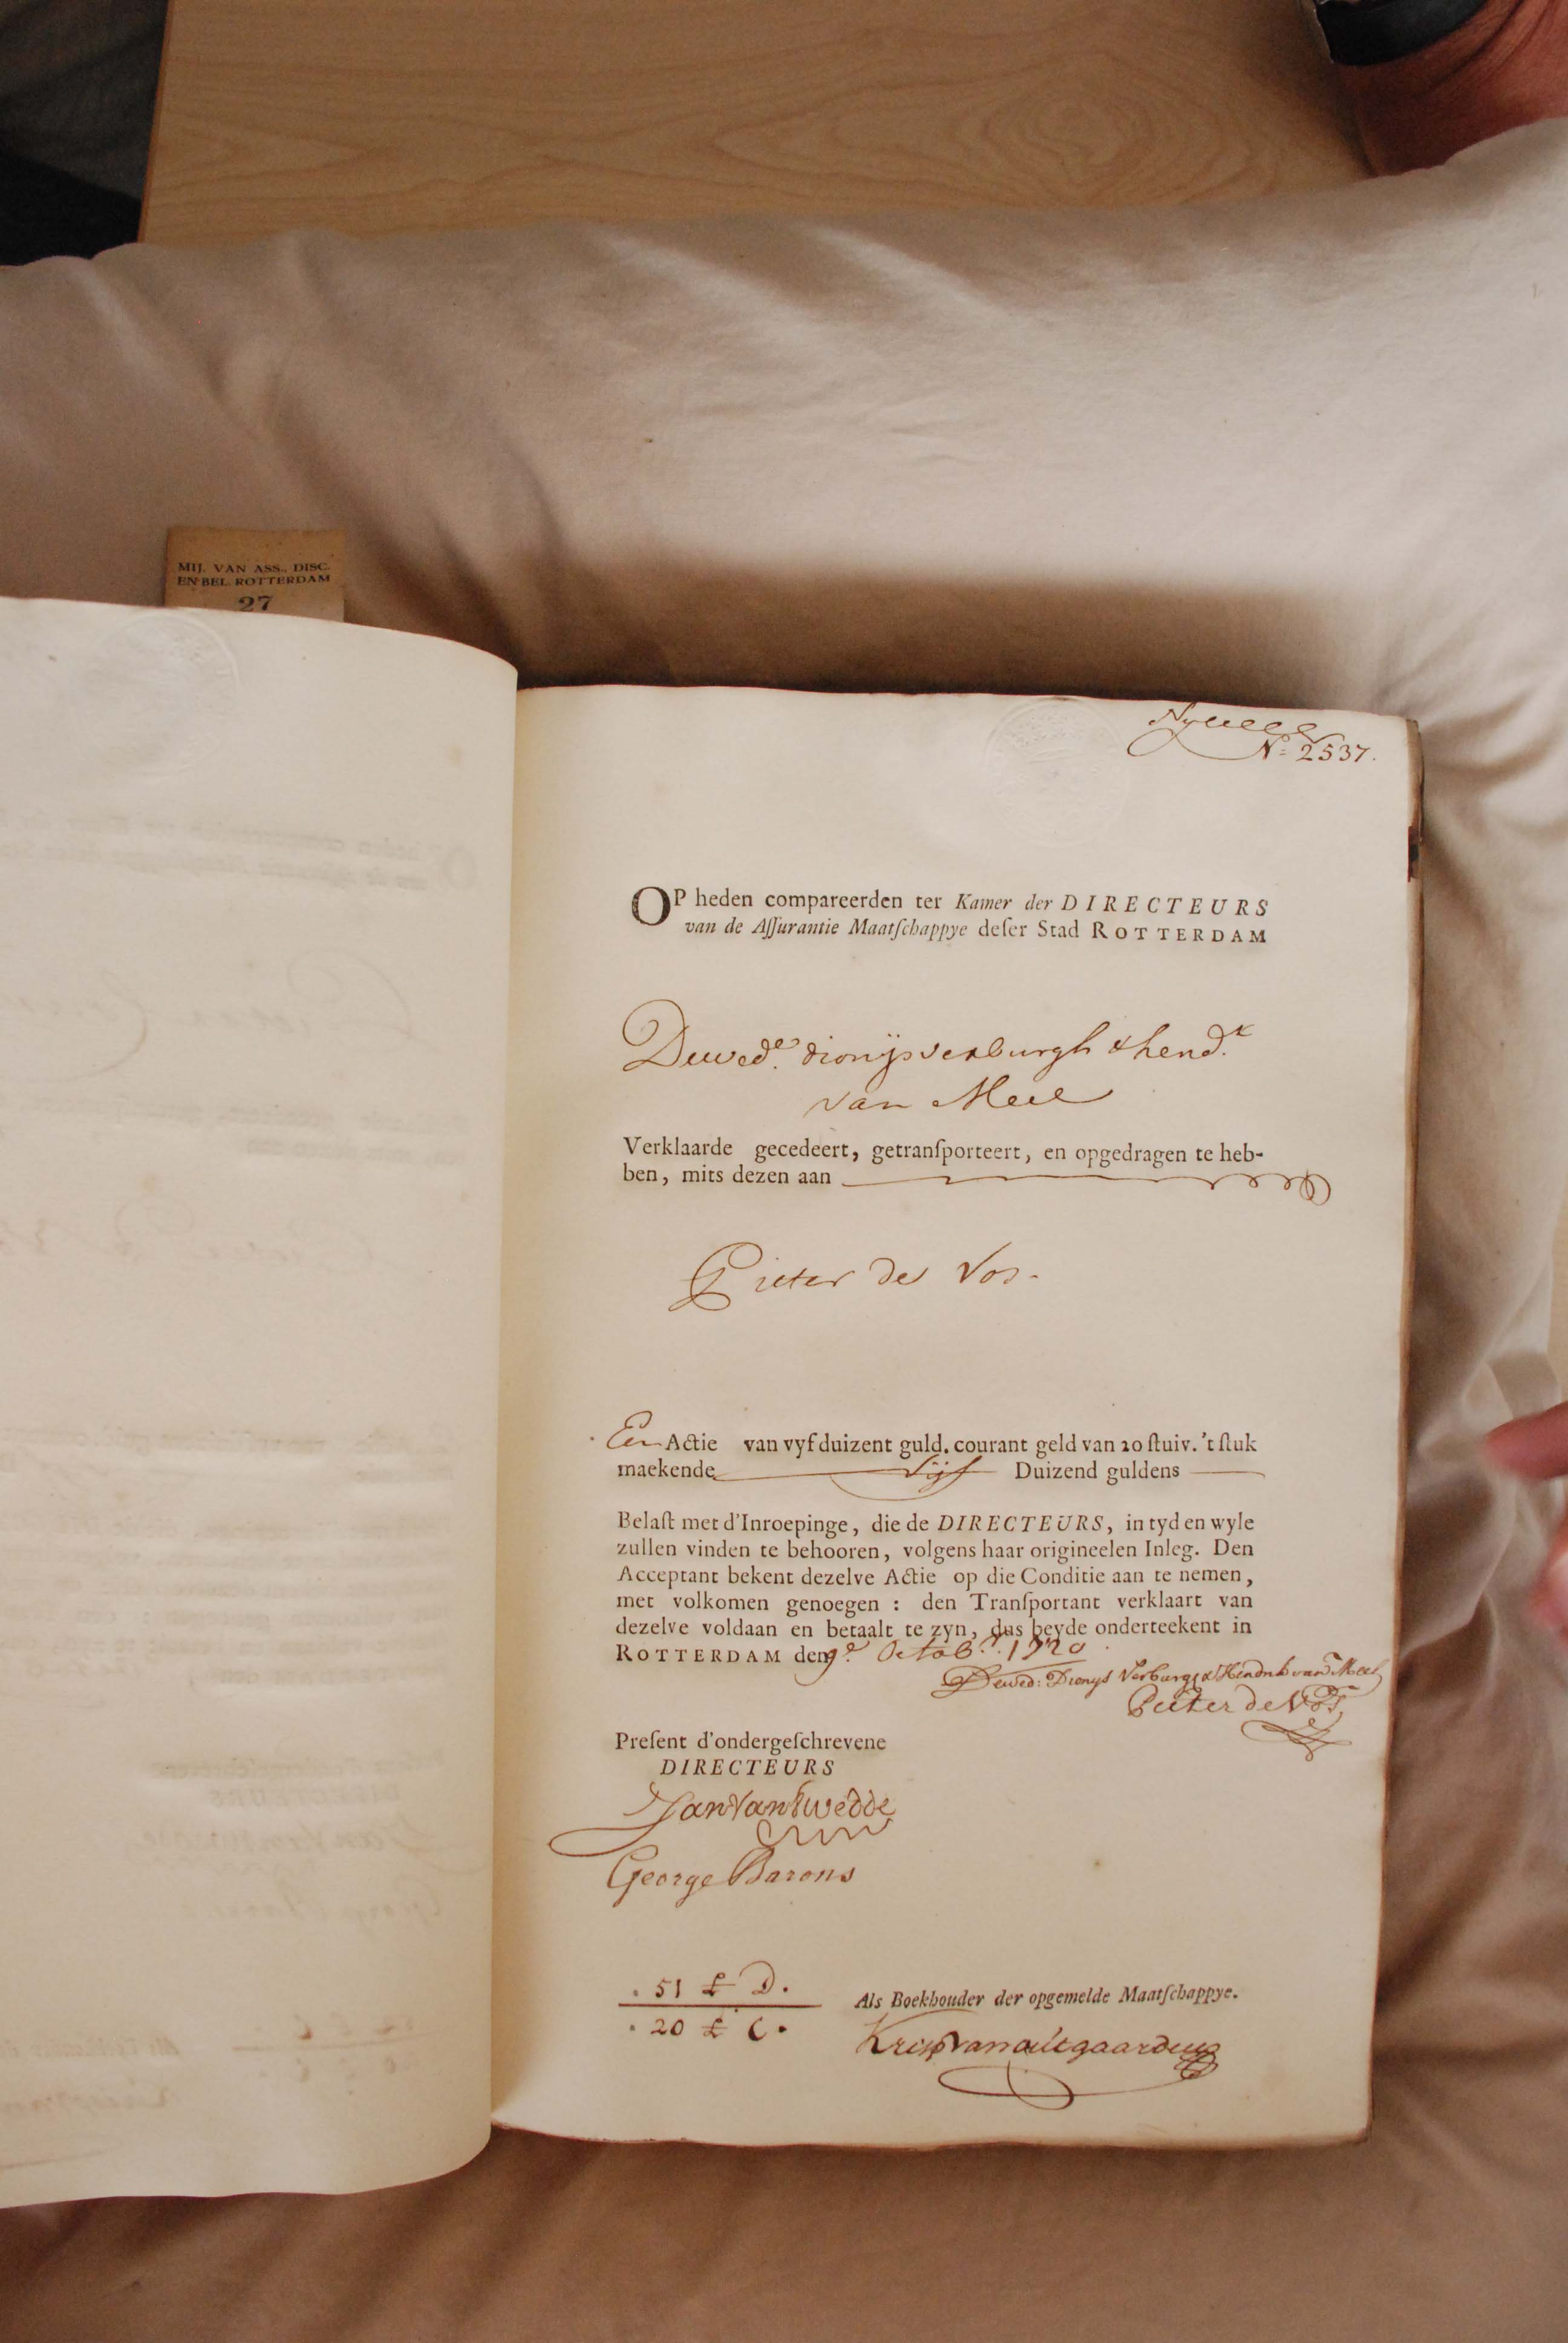 MIJ. VAN ASS., DISC.
EN BEL. ROTTERDAM
27
N= 2537.
OP heden compareerden ter Kamer der DIRECTEURS
van de Aſſurantie Maatſchappye deſer Stad ROTTERDAM
Dewed.e dionijs verburgh & hend.k
van Meel
Verklaarde gecedeert, getranſporteert, en opgedragen te heb-
ben, mits dezen aan
Pieter de Vos.
Een Actie van vyf duizent guld. courant geld van 20 ſtuiv. 't ſtuk
maekende Vijf Duizend guldens
Belaſt met d'Inroepinge, die de DIRECTEURS, in tyd en wyle
zullen vinden te behooren, volgens haar origineelen Inleg. Den
Acceptant bekent dezelve Actie op die Conditie aan te nemen,
met volkomen genoegen : den Tranſportant verklaart van
dezelve voldaan en betaalt te zyn, dus beyde onderteekent in
ROTTERDAM den 9.e Octob.r 1720
Dewed: Dionys Verburg & Hendrik van Meel
Pieter de Vos,
Preſent d'ondergeſchrevene
DIRECTEURS
Jan Van Twedde
George Barons
51 £ D.
20 £ C.
Als Boekhouder der opgemelde Maatſchappye.